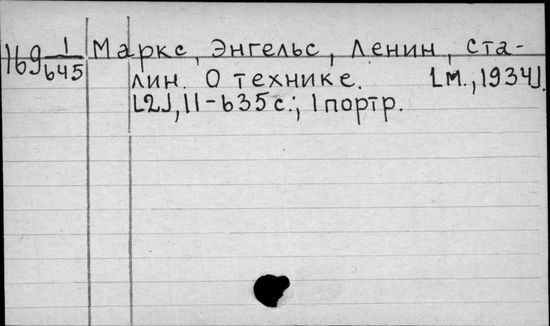 169 1/645 Маркс, Энгельс, Ленин, Ста-
лин. О технике. [М., 1934].
[2], II-635 с.; 1 портр.